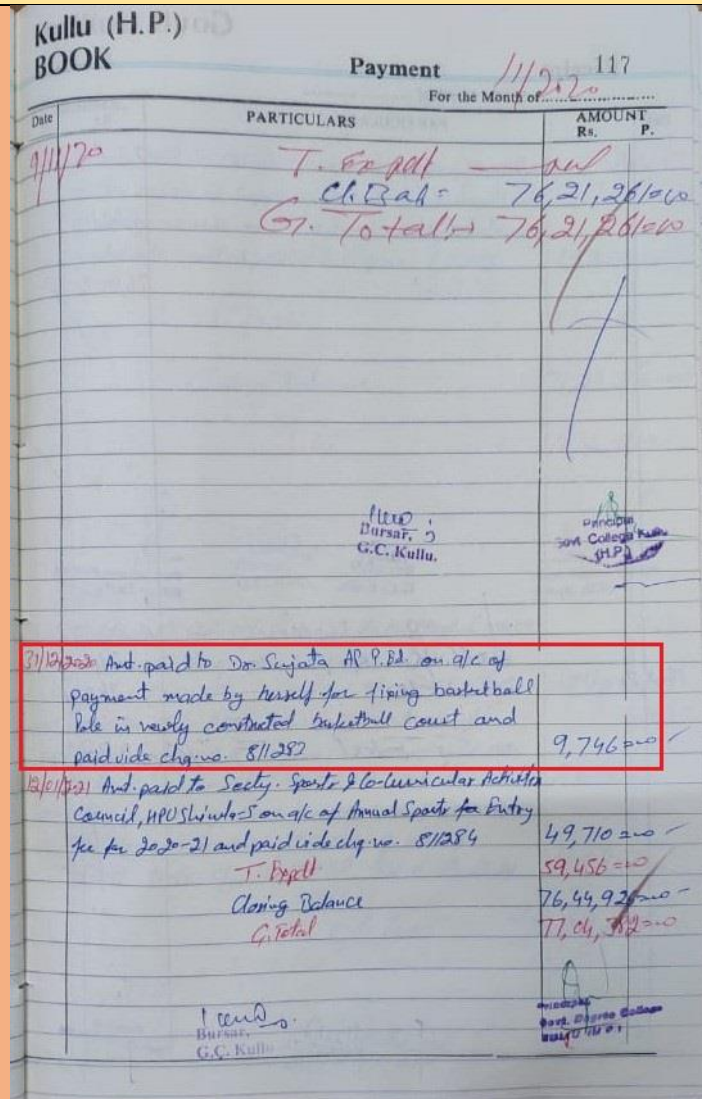 Kullu (H.P.)
BOOK
Payment
11/2020
117
For the Month of
Date
PARTICULARS
AMOUNT
Rs. P.
9/11/20 T. Expdt — nil
Cl. Bal = 76,21,261=00
G. Total → 76,21,261=00
Bursar,
G.C. Kullu.
Principal
Govt. College Kullu
(H.P.)
31/12/2020 Amt. paid to Dr. Sujata AP P.Ed. on a/c of
payment made by herself for fixing basketball
Pole in newly constructed basketball court and
paid vide chq. no. 811283 9,746=00
12/01/2021 Amt. paid to Secty. Sports & Co-Curricular Activities
Council, HPU Shimla-5 on a/c of Annual Sports fee Entry
fee for 2020-21 and paid vide chq. no. 811284 49,710=00
T. Expdt 59,456=00
Closing Balance 76,44,926=00
G. Total 77,04,382=00
Bursar,
G.C. Kullu
Principal
Govt. Degree College